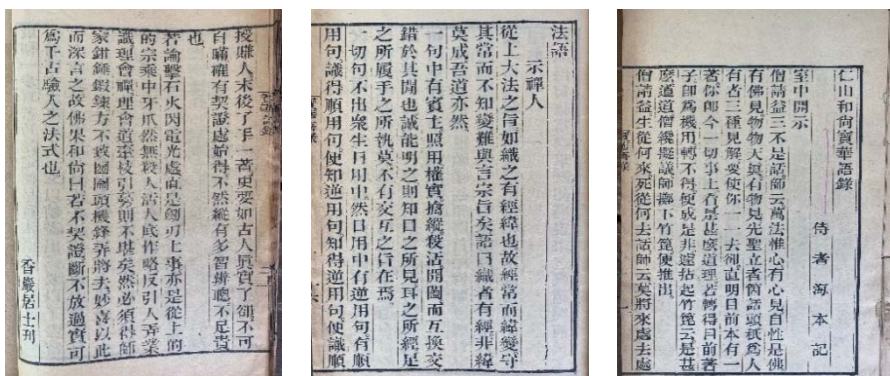 仁山和尚寶華語錄
侍者海本記
室中開示
僧請益三不是話師云萬法惟心有心見自性是佛
有佛見物物天真有物見先聖立者箇話頭秖為人
有者三種見解要使你一一去卻直明目前本有一
著你即今一切事上看是甚麼道理若瞥得目前著
子即為機用轉不得便成是非遂拈起竹篦云是甚
麼道道僧纔擬議師擲下竹篦便推出
僧請益生從何來死從何去話師云莫將來處去處
法語
示禪人
從上大法之旨如織之有經緯也故經常而緯變守
其常而不知變難與言宗旨矣語曰織者有經非緯
莫成吾道亦然
一句中有賓主照用權實擒縱殺活開闔而互換交
錯於其間也誠能明之則知目之所見耳之所經足
之所履手之所執莫不有交互之旨在焉
一切句不出眾生日用中然日用中有逆用句有順
用句識得順用句便知逆用句知得逆用句便識順
授賺人末後了手一著更要如古人真實了卻不可
自瞞確有契證處始得不然縱有多智辨聰不足貴
也
若論擊石火閃電光處直是劍刃上事亦是從上的
的宗乘中牙爪然無殺人活人底作略反引人弄業
識理會禪理會道牽枝引蔓則不堪矣然必須得師
家鉗錘鍛鍊方不致團圞頭機鋒弄將去妙喜以此
而深言之故佛果和尚曰若不契證斷不放過實可
為千古驗人之法式也
香嚴居士刊